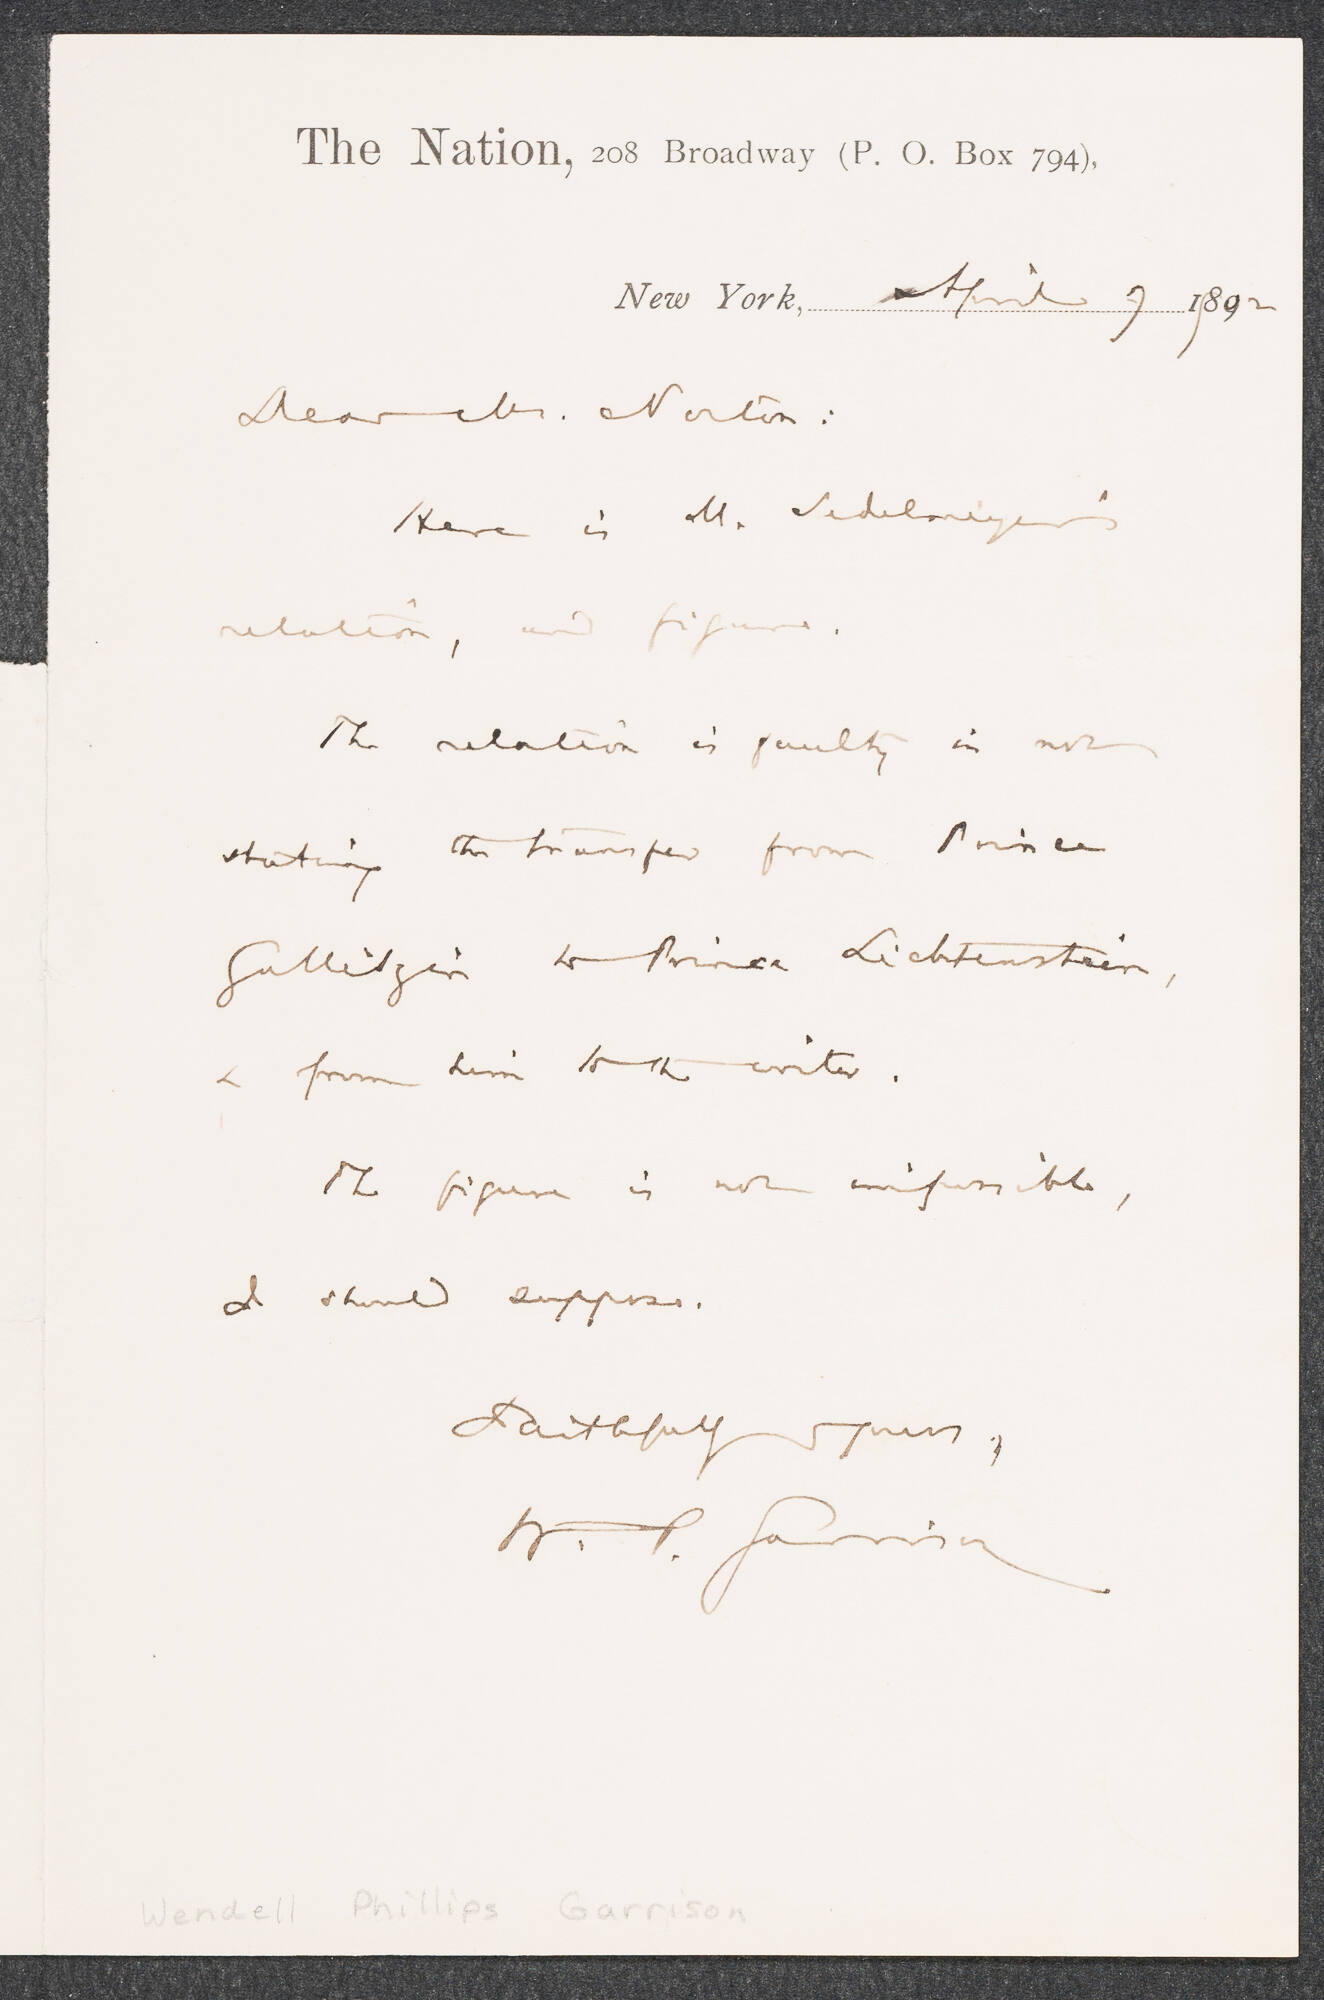 The Nation, 208 Broadway (P. O. Box 794),
New York, April 9 1892
Dear Mr. Norton:
Here is M. Sedelmeyer's
relation, and figure.
The relation is faulty in not
stating the transfer from Prince
Gallitzin to Prince Lichtenstein,
& from him to the writer.
The figure is not impossible,
I should suppose.
Faithfully yours,
W. P. Garrison
Wendell Phillips Garrison